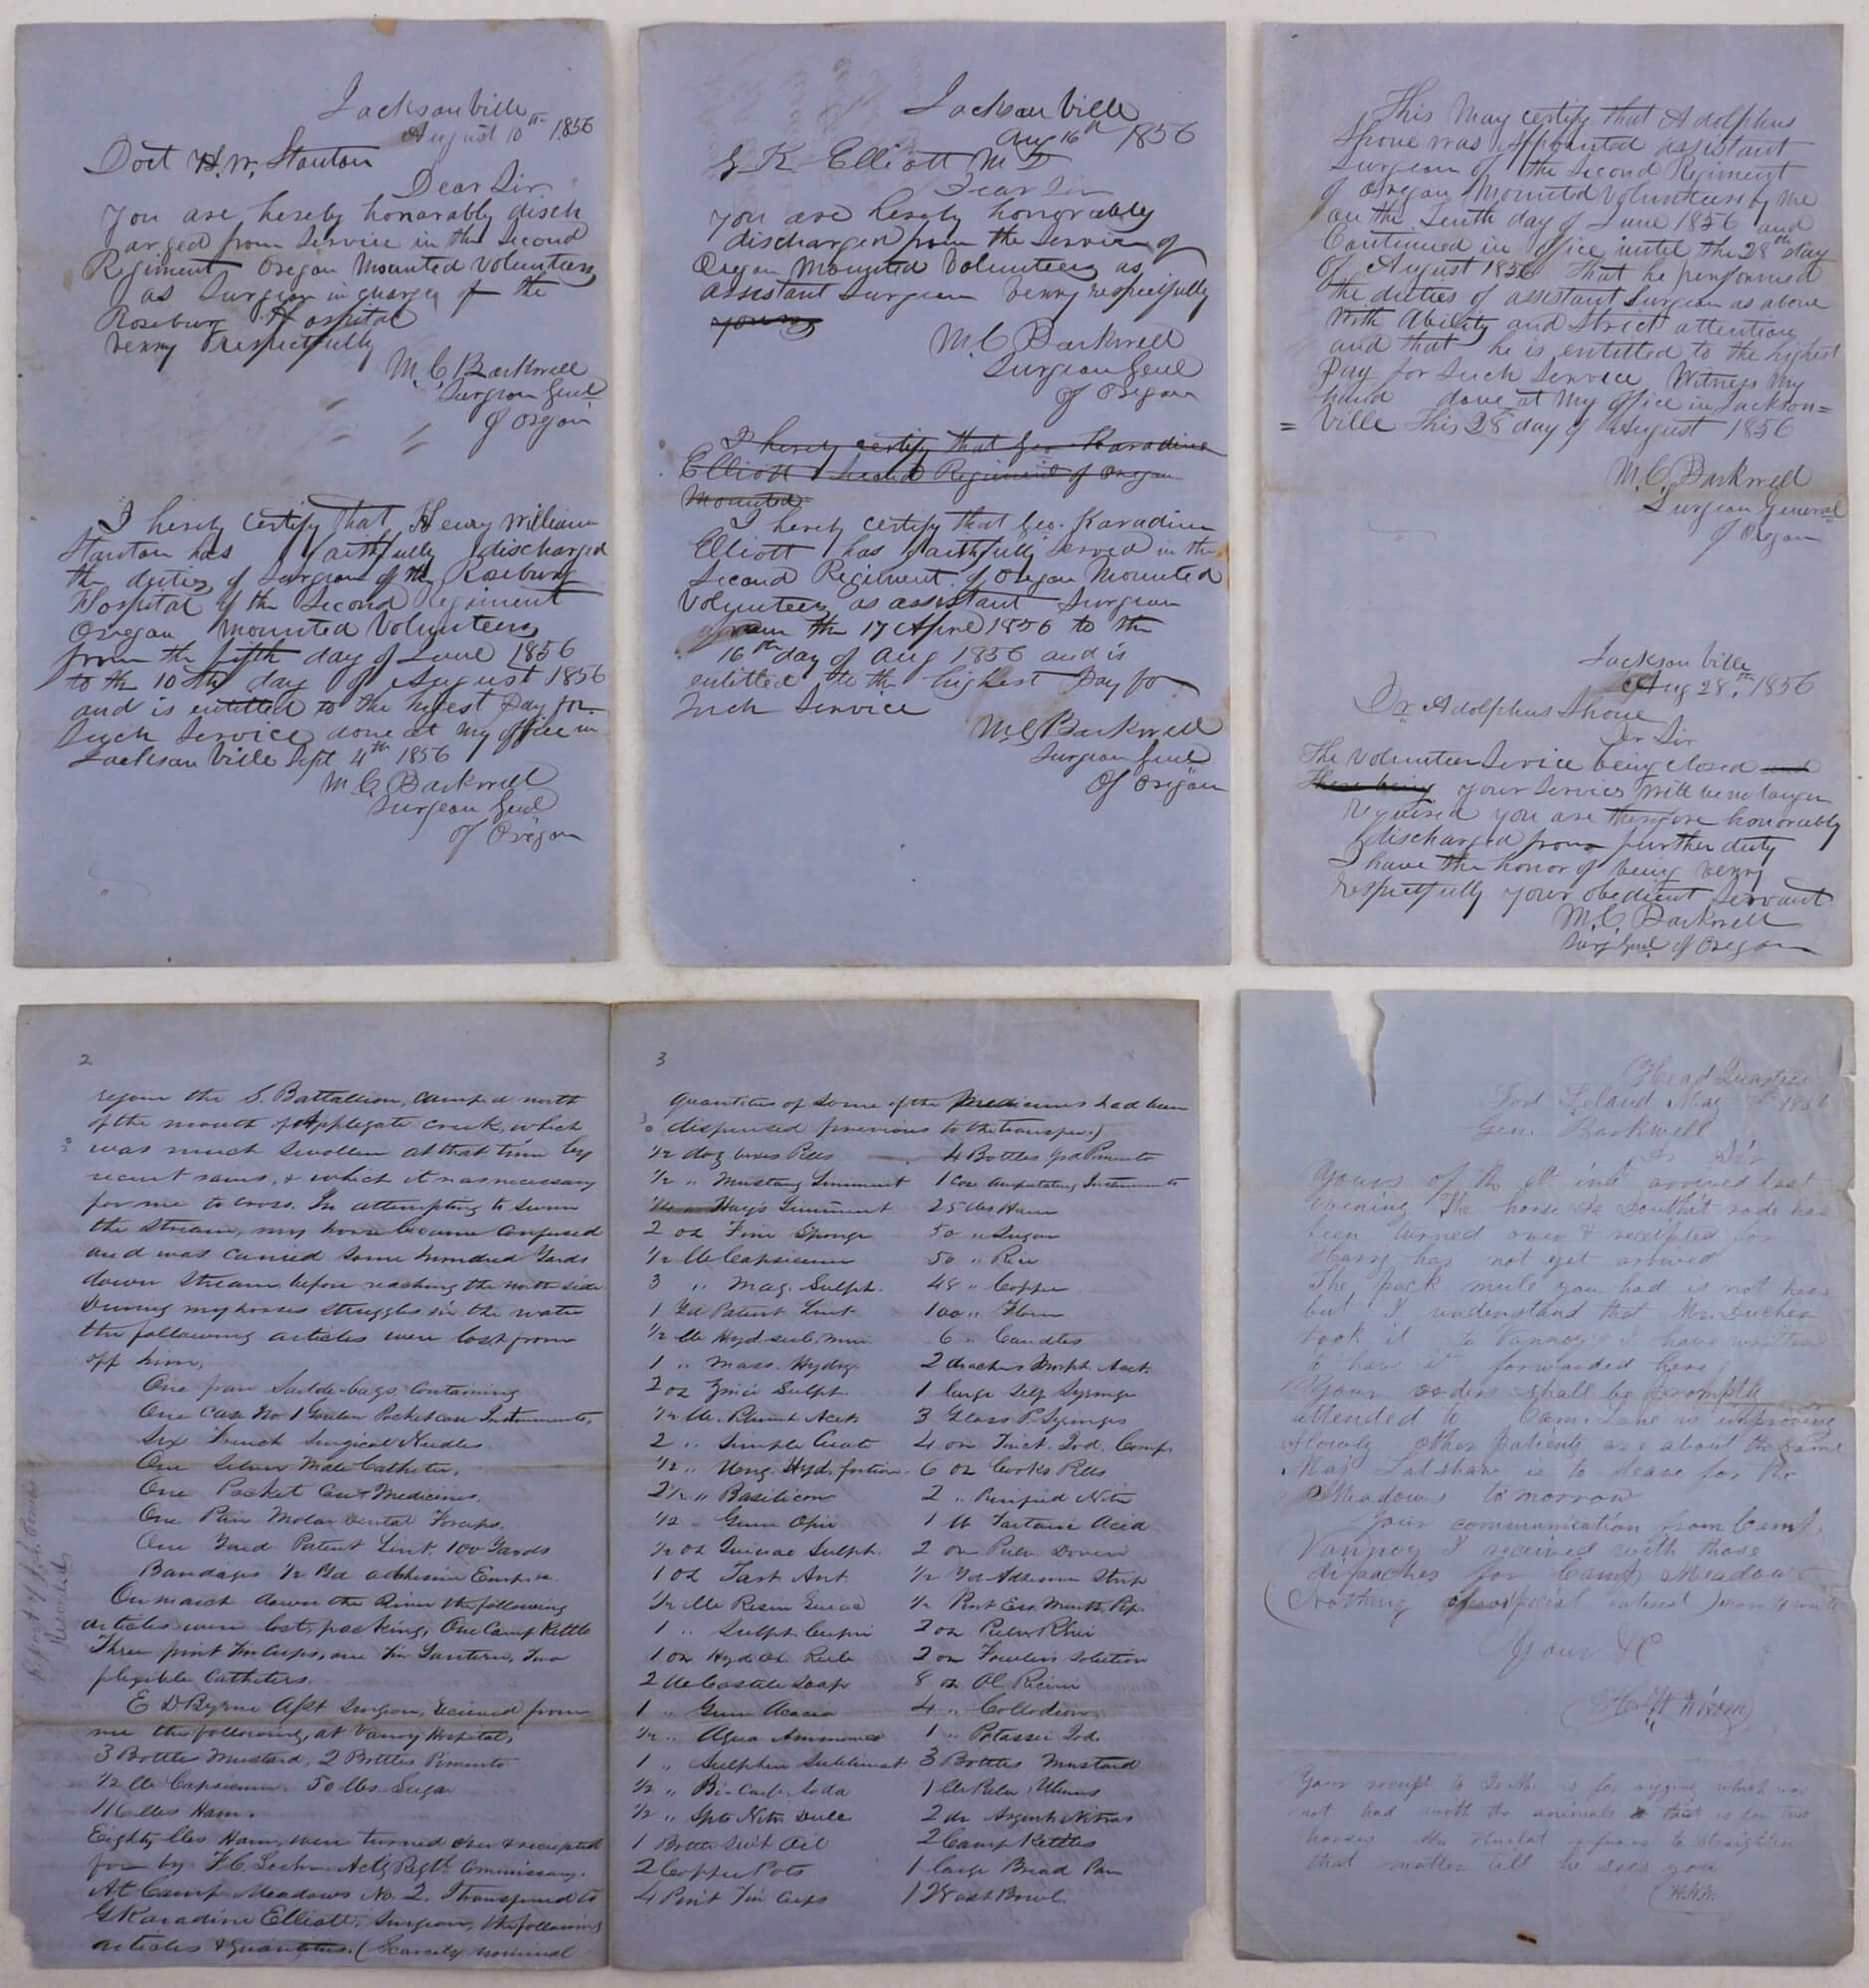 Jacksonville
August 10th 1856
Doct H. W. Stanton
Dear Sir
You are hereby honorably disch
arged from Service in the Second
Regiment Oregon Mounted Volunteers
as Surgeon in charge of the
Roseburg Hospital
verry respectfully
M. C. Barkwell
Surgeon Genl
of Oregon
I hereby certify that Henry William
Stanton has faithfully discharged
the duties of Surgeon of the Roseburg
Hospital of the Second Regiment
Oregon Mounted Volunteers
from the fifth day of June 1856
to the 10th day of August 1856
and is entitled to the highest Pay for
Such Service done at My office in
Jacksonville Sept 4th 1856
M. C. Barkwell
Surgeon Genl
of Oregon
Jacksonville
Aug 16th 1856
G K Elliott M D
Dear Sir
You are hereby honorably
discharged from the Service of
Oregon Mounted Volunteers as
assistant Surgeon verry respectfully
yours
M. C. Barkwell
Surgeon Genl
of Oregon
I hereby certify that Geo Karadine
Elliott Second Regiment of Oregon
Mounted
I hereby certify that Geo. Karadine
Elliott has faithfully served in the
Second Regiment of Oregon Mounted
Volunteers as assistant Surgeon
from the 17 April 1856 to the
16th day of Aug 1856 and is
entitled to the highest Pay for
Such Service
M. C. Barkwell
Surgeon Genl
Of Oregon
This May certify that Adolphus
Shone was Appointed assistant
Surgeon of the Second Regiment
of Oregon Mounted Volunteers by Me
on the Tenth day of June 1856 and
Continued in office until the 28th day
of August 1856 that he performed
the duties of assistant Surgeon as above
With Ability and Strict attention
and that he is entitled to the highest
Pay for Such Service Witness My
hand done at My office in Jackson=
= Ville This 28th day of August 1856
M. C. Barkwell
Surgeon General
of Oregon
Jacksonville
Aug 28th 1856
Dr Adolphus Shone
Dr Sir
The Volunteer Service being closed and
there being your Services Will be no longer
required you are therefore honorably
discharged from further duty
I have the honor of being verry
respectfully your obedient Servant
M. C. Barkwell
Surg Genl of Oregon
2
rejoin the S. Battallion, camped north
of the mouth of Applegate Creek, which
was much swollen at that time by
recent rains, & which it was necessary
for me to cross. In attempting to swim
the stream, my horse became confused
and was carried some hundred Yards
down stream before reaching the north side
During my horses struggles in the water
the following articles were lost from
off him,
One pair Saddle-bags, containing
One Case No. 1 Pocket case Instruments,
Six French Surgical Needles
One Silver Male Catheter,
One Pocket Case Medicines.
One Pair Molar Dental Forceps.
One Yard Patent Lint. 100 Yards
Bandages ½ Yd adhesive
On march down the River the following
articles were lost, packing, One Camp Kettle
Three pint Tin Cups, one Tin Lantern, Two
flexible Catheters.
E D Byrne Asst Surgeon, received from
me the following, at Vanoy Hospital,
3 Bottles Mustard, 2 Bottles Pimento
½ lb Capsicum. 50 lbs Sugar
lbs Ham.
Eighty lbs Ham, were turned over & receipted
for by F. C. Actg Regtl Commissary.
At Camp Meadows No. 2. I transferred to
G Karadine Elliott, Surgeon, the following
articles & quantities. (Scarcely nominal
3
quantities of some of the Medicines had been
dispensed previous to the transfer.)
½ doz boxes Pills 4 Bottles Grd Pimento
½ " Mustang Liniment 1 Case Amputating Instruments
½ " Hay's Liniment 25 lbs Ham
2 oz Fine Sponge 50 " Sugar
½ lb Capsicum 50 " Rice
3 " Mag. Sulph. 48 " Coffee
1 Yd Patent Lint 100 " Flour
½ lb Hyd. sub. mur. 6 " Candles
1 " Mass. Hydrg. 2 drachms Morph. Acet.
2 oz Zinci Sulph. 1 large Self Syringe
½ lb. Plumb Acet. 3 Glass P. Syringes
2 " Simple Cerate 4 oz Tinct. Iod. Comp.
½ " Ung. Hyd. fortior. 6 oz Cooks Pills
2½ " Basilicon 2 " Purified Nitre
½ " Gum Opii 1 lb Tartaric Acid
½ oz Quinae Sulph. 2 oz Pulv. Doveri
1 oz Tart Ant. ½ Yd Adhesive Strip
½ lb Resin Guiac ½ Pint Ess. Menth. Pip.
1 " Sulph. Cupri 2 oz Pulv. Rhei
1 oz Hyd. Ox. Rub. 2 oz Fowlers Solution
2 lb Castile Soap 8 oz Ol. Ricini
1 " Gum Acacia 4 " Collodion
½ " Aqua Ammonia 1 " Potassii Iod.
1 " Sulphur Sublimat 3 Bottles Mustard
½ " Bi-Carb. Soda 1 lb Pulv. Ulmus
½ " Spts Nitre Dulc 2 dr Argenti Nitras
1 Bottle Swt Oil 2 Camp Kettles
2 Coffee Pots 1 large Bread Pan
4 Pint Tin Cups 1 Wash Bowl
Head Quarters
Fort Leland May 1856
Gen. Barkwell
Dr Sir
Yours of the inst arrived last
evening The horse Dr Douthit rode has
been turned over & receipted for
Harry has not yet arrived
The pack mule you had is not here
but I understand that Mr.
took it to Vannoy's I have written
to have it forwarded here
Your orders shall be promptly
attended to Cam. Lane is improving
slowly other patients are about the same
Maj Latshaw is to leave for the
Meadows tomorrow
Your communication from Camp
Vannoy I received with those
dispatches for Camp Meadows
(Nothing of special interest)
Yours &c
Your receipt to is for rigging which was
not had with the animals & that is for two
horses Mr refuses to straighten
that matter till he sees you